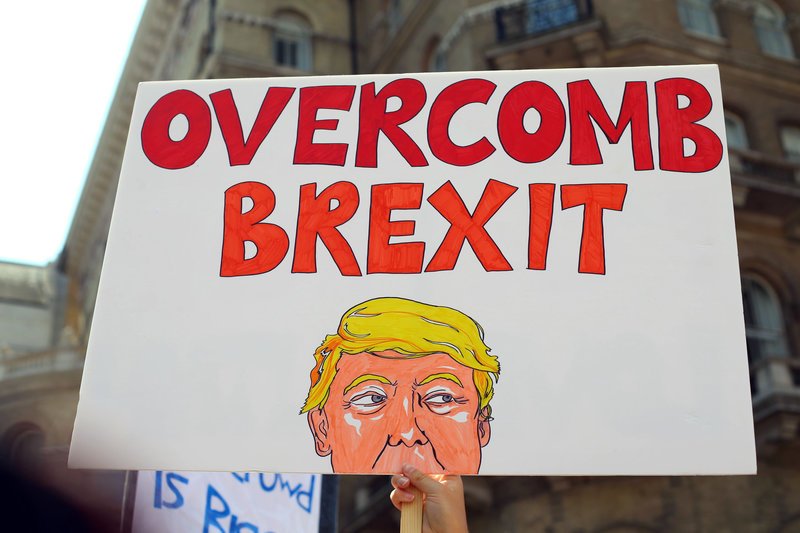 OVERCOMB
BREXIT
Crowd
is